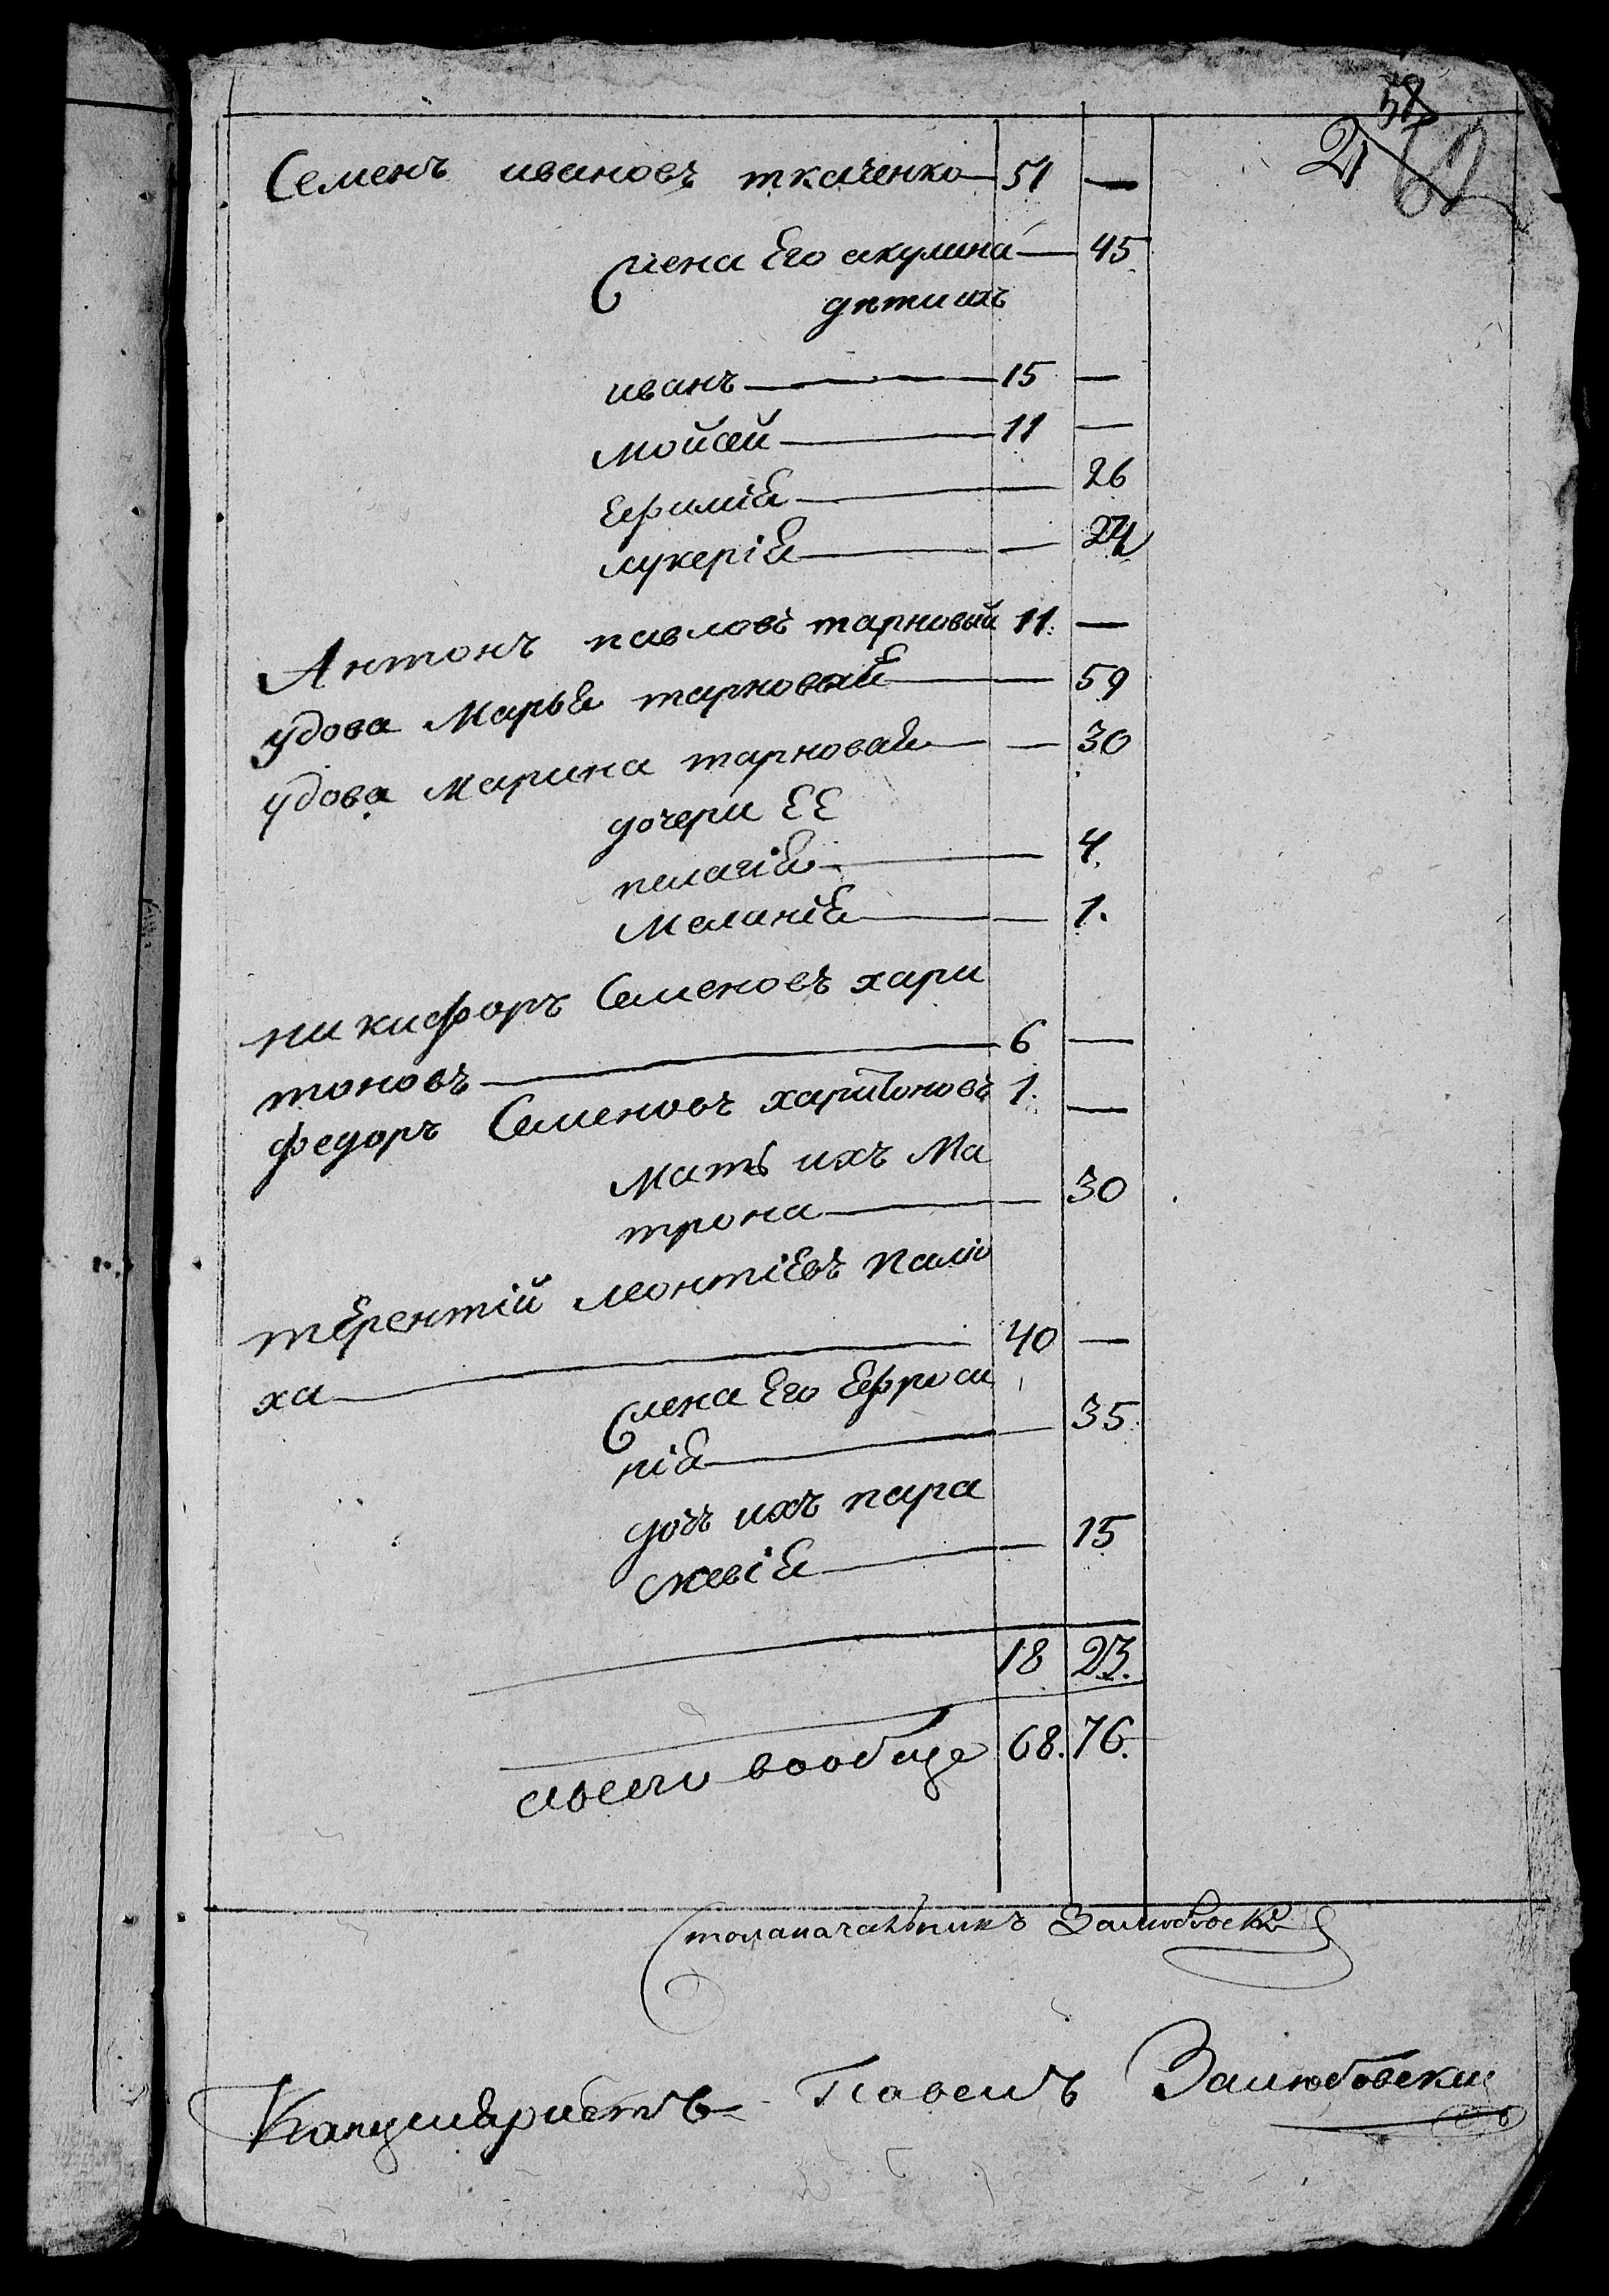 58
21 62
Семенъ ивановъ ткаченко 51 —
жена Его акулина — 45
дѣти ихъ
иванъ — 15 —
мойсей — 11 —
Ефимія — 26
лукерія — 24
Антонъ павловъ тарновый 11. —
удова Марья тарновая — 59
удова Марина тарновая — 30
дочери ЕЕ
пелагія — 4.
Меланія — 1.
никифоръ Семеновъ хари
тоновъ — 6 —
федоръ Семеновъ харитоновъ 1. —
Мать ихъ Ма
трона — 30
терентій леонтіевъ Палю
ха — 40 —
жена Его Ефроси
нія — 35.
дочь ихъ пара
скевія — 15
18 23.
всего вообще 68. 76.
Столаначальникъ Залюбовски
Канцеляристъ Павелъ Залюбовски